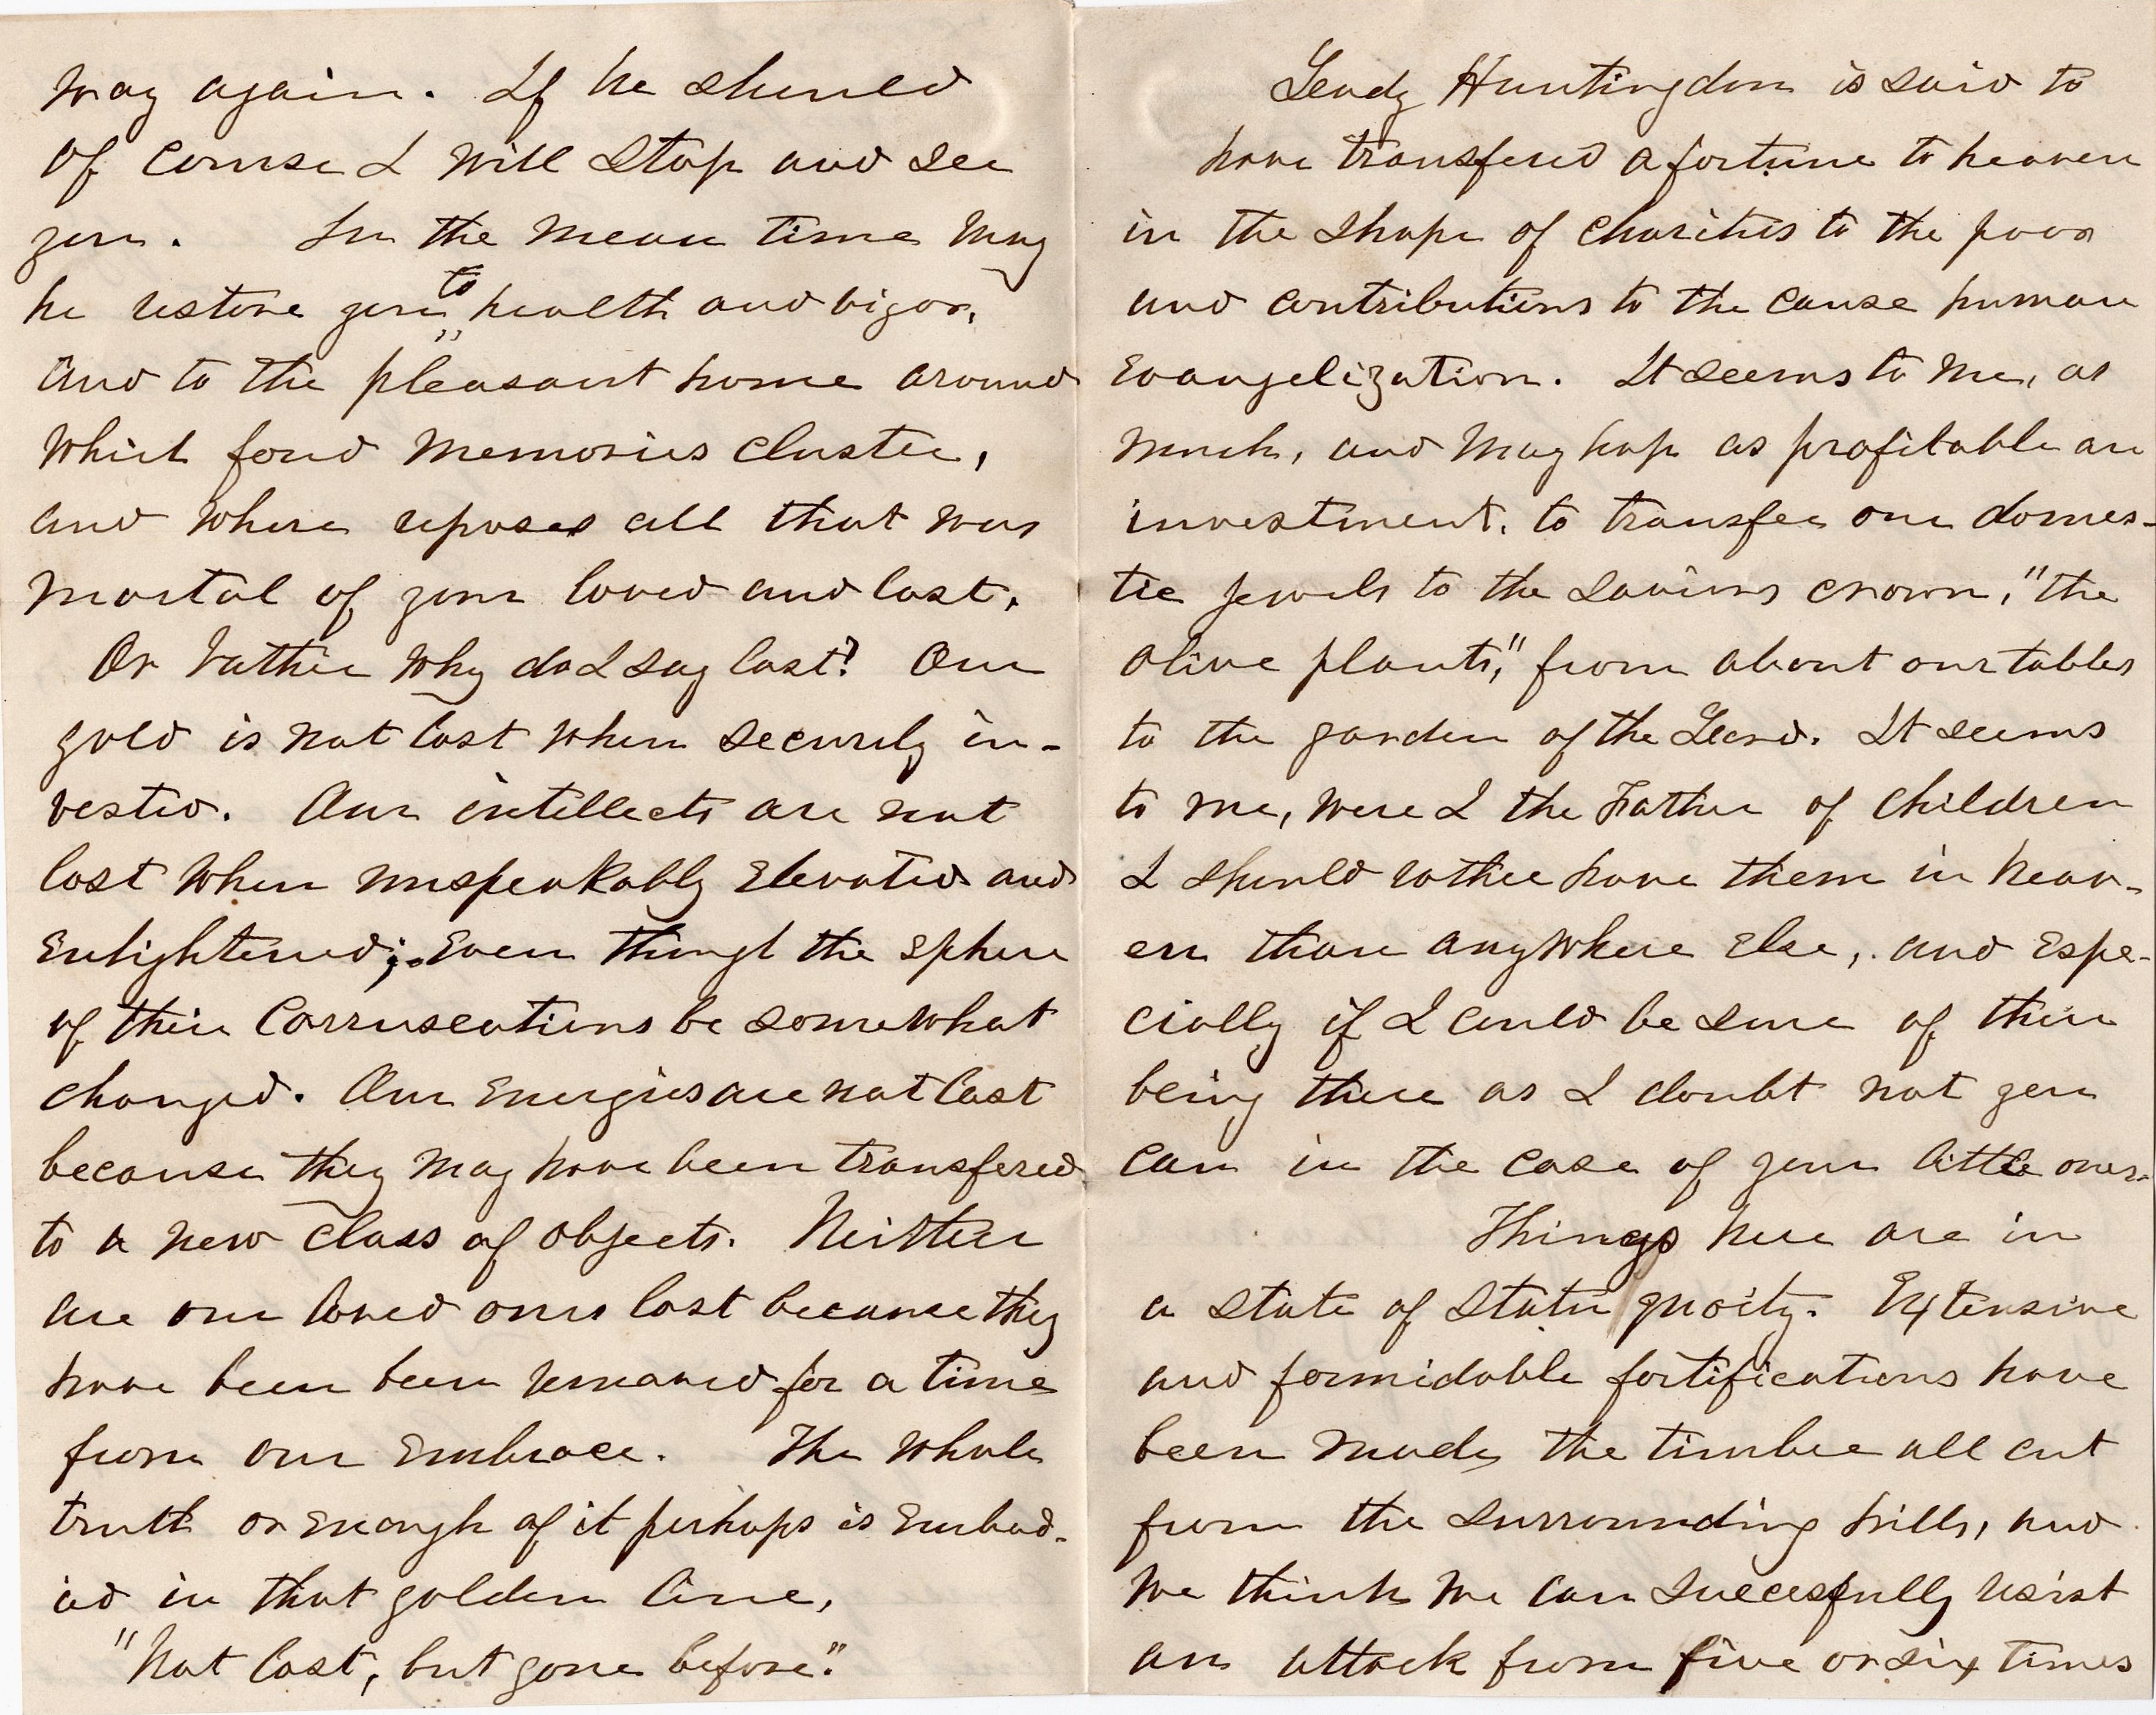 way again. If he should
of course I will stop and see
you. In the mean time may
he restore you to health and vigor,
and to the pleasant home around
which fond memories cluster,
and where reposes all that was
mortal of your loved and lost.
Or rather why do I say lost? Our
gold is not lost when securely in-
vested. Our intellects are not
lost when unspeakably elevated and
enlightened; even though the sphere
of their corruscations be somewhat
changed. Our energies are not lost
because they may have been transfered
to a new class of objects. Neither
are our loved ones lost because they
have been been removed for a time
from our embrace. The whole
truth or enough of it perhaps is embod-
ied in that golden line,
"Not lost, but gone before."
Lady Huntingdon is said to
have transfered a fortune to heaven
in the shape of charities to the poor
and contributions to the cause human
evangelization. It seems to me, as
much, and may hap as profitable an
investment, to transfer our domes-
tic jewels to the Saviors crown, "the
olive plants," from about our tables
to the garden of the Lord. It seems
to me, were I the Father of children
I should rather have them in heav-
en than anywhere else, and espe-
cially if I could be sure of their
being there as I doubt not you
can in the case of your little ones.
Things here are in
a state of statu quoity. Extensive
and formidable fortifications have
been made, the timber all cut
from the surrounding hills, and
we think we can succesfully resist
an attack from five or six times